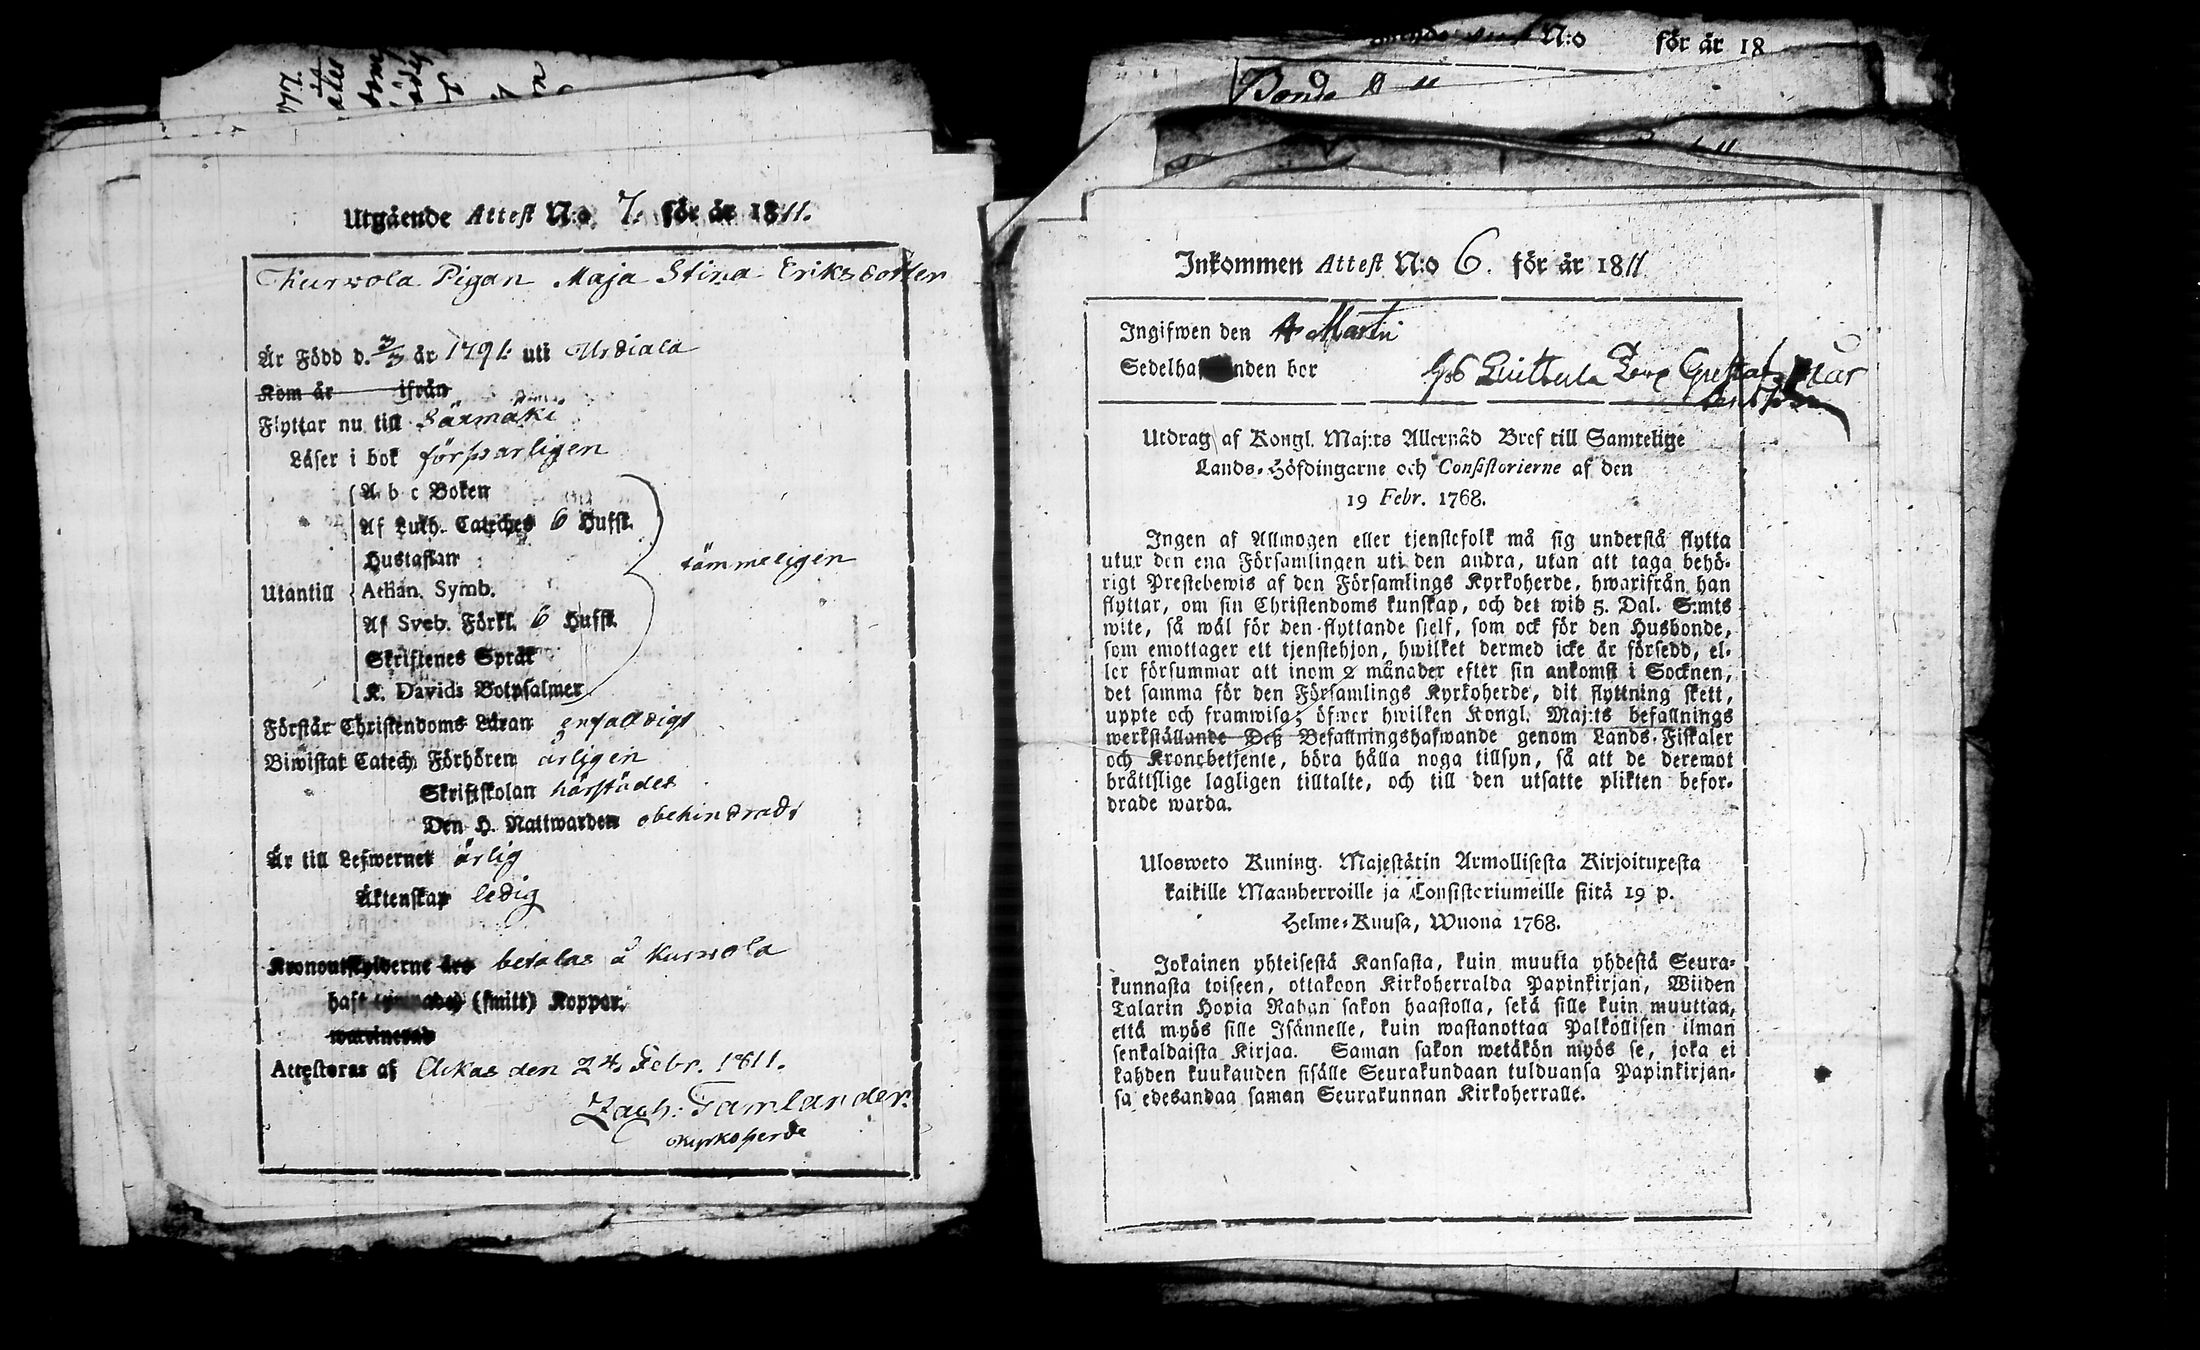 Utgående Attest N:o 7. för år 1811.
Kurvola Pigan Maja Stina Eriksdotter
Är Född d. 3/3 år 1791. uti Urdiala
Kom år ifrån
Flyttar nu till Säxmäki
Läser i bok försvarligen
A b c Boken
Af Luth. Cateches 6 Hufst.
Hustaflan
tämmeligen
Utantill Athan. Symb.
Af Sveb. Förkl. 6 Hufst.
Skriftenes Språk
K. Davids Botpsalmer
Förstår Christendoms Läran enfalldigt
Biwistat Catech. Förhören årligen
Skriftskolan härstädes
Den H. Nattwarden obehindradt
Är till Lefwernet ärlig
Äktenskap ledig
Kronoutskylderne äro betalas å Kurvola
haft (smitt) Koppor.
Attesteras af Ackas den 24 Febr. 1811.
Zach: Tamlander.
Kyrkoherde
N:o för år 18
Bonde
Inkommen Attest N:o 6. för år 1811
Ingifwen den 4 Martii
Sedelhafwanden bor hos Gustaf
Utdrag af Kongl. Maj:ts Allernåd Bref till Samtelige
Lands-Höfdingarne och Consistorierne af den
19 Febr. 1768.
Ingen af Allmogen eller tjenstefolk må sig understå flytta
utur den ena Församlingen uti den andra, utan att taga behö-
rigt Prestebewis af den Församlings Kyrkoherde, hwarifrån han
flyttar, om sin Christendoms kunskap, och det wid 5. Dal. S:mts
wite, så wäl för den flyttande sjelf, som ock för den Husbonde,
som emottager ett tjenstehjon, hwilket dermed icke är försedd, el-
ler försummar att inom 2 månader efter sin ankomst i Socknen,
det samma för den Församlings Kyrkoherde, dit flyttning skett,
uppte och framwisa; öfwer hwilken Kongl. Maj:ts befallnings
werkställande Deß Befallningshafwande genom Lands-Fiskaler
och Kronobetjente, böra hålla noga tillsyn, så att de deremot
bråttslige lagligen tilltalte, och till den utsatte plikten befor-
drade warda.
Ulosweto Kuning. Majestätin Armollisesta Kirjoituxesta
kaikille Maanherroille ja Consistoriumeille siitä 19 p.
Helme-Kuusa, Wuona 1768.
Jokainen yhteisestä Kansasta, kuin muutta yhdestä Seura-
kunnasta toiseen, ottakoon Kirkoherralda Papinkirjan, Wiiden
Talarin Hopia Rahan sakon haastolla, sekä sille kuin muuttaa,
että myös sille Isännelle, kuin wastanottaa Palkollisen ilman
senkaldaista Kirjaa. Saman sakon wetäkön myös se, joka ei
kahden kuukauden sisälle Seurakundaan tulduansa Papinkirjan-
sa edesandaa saman Seurakunnan Kirkoherralle.